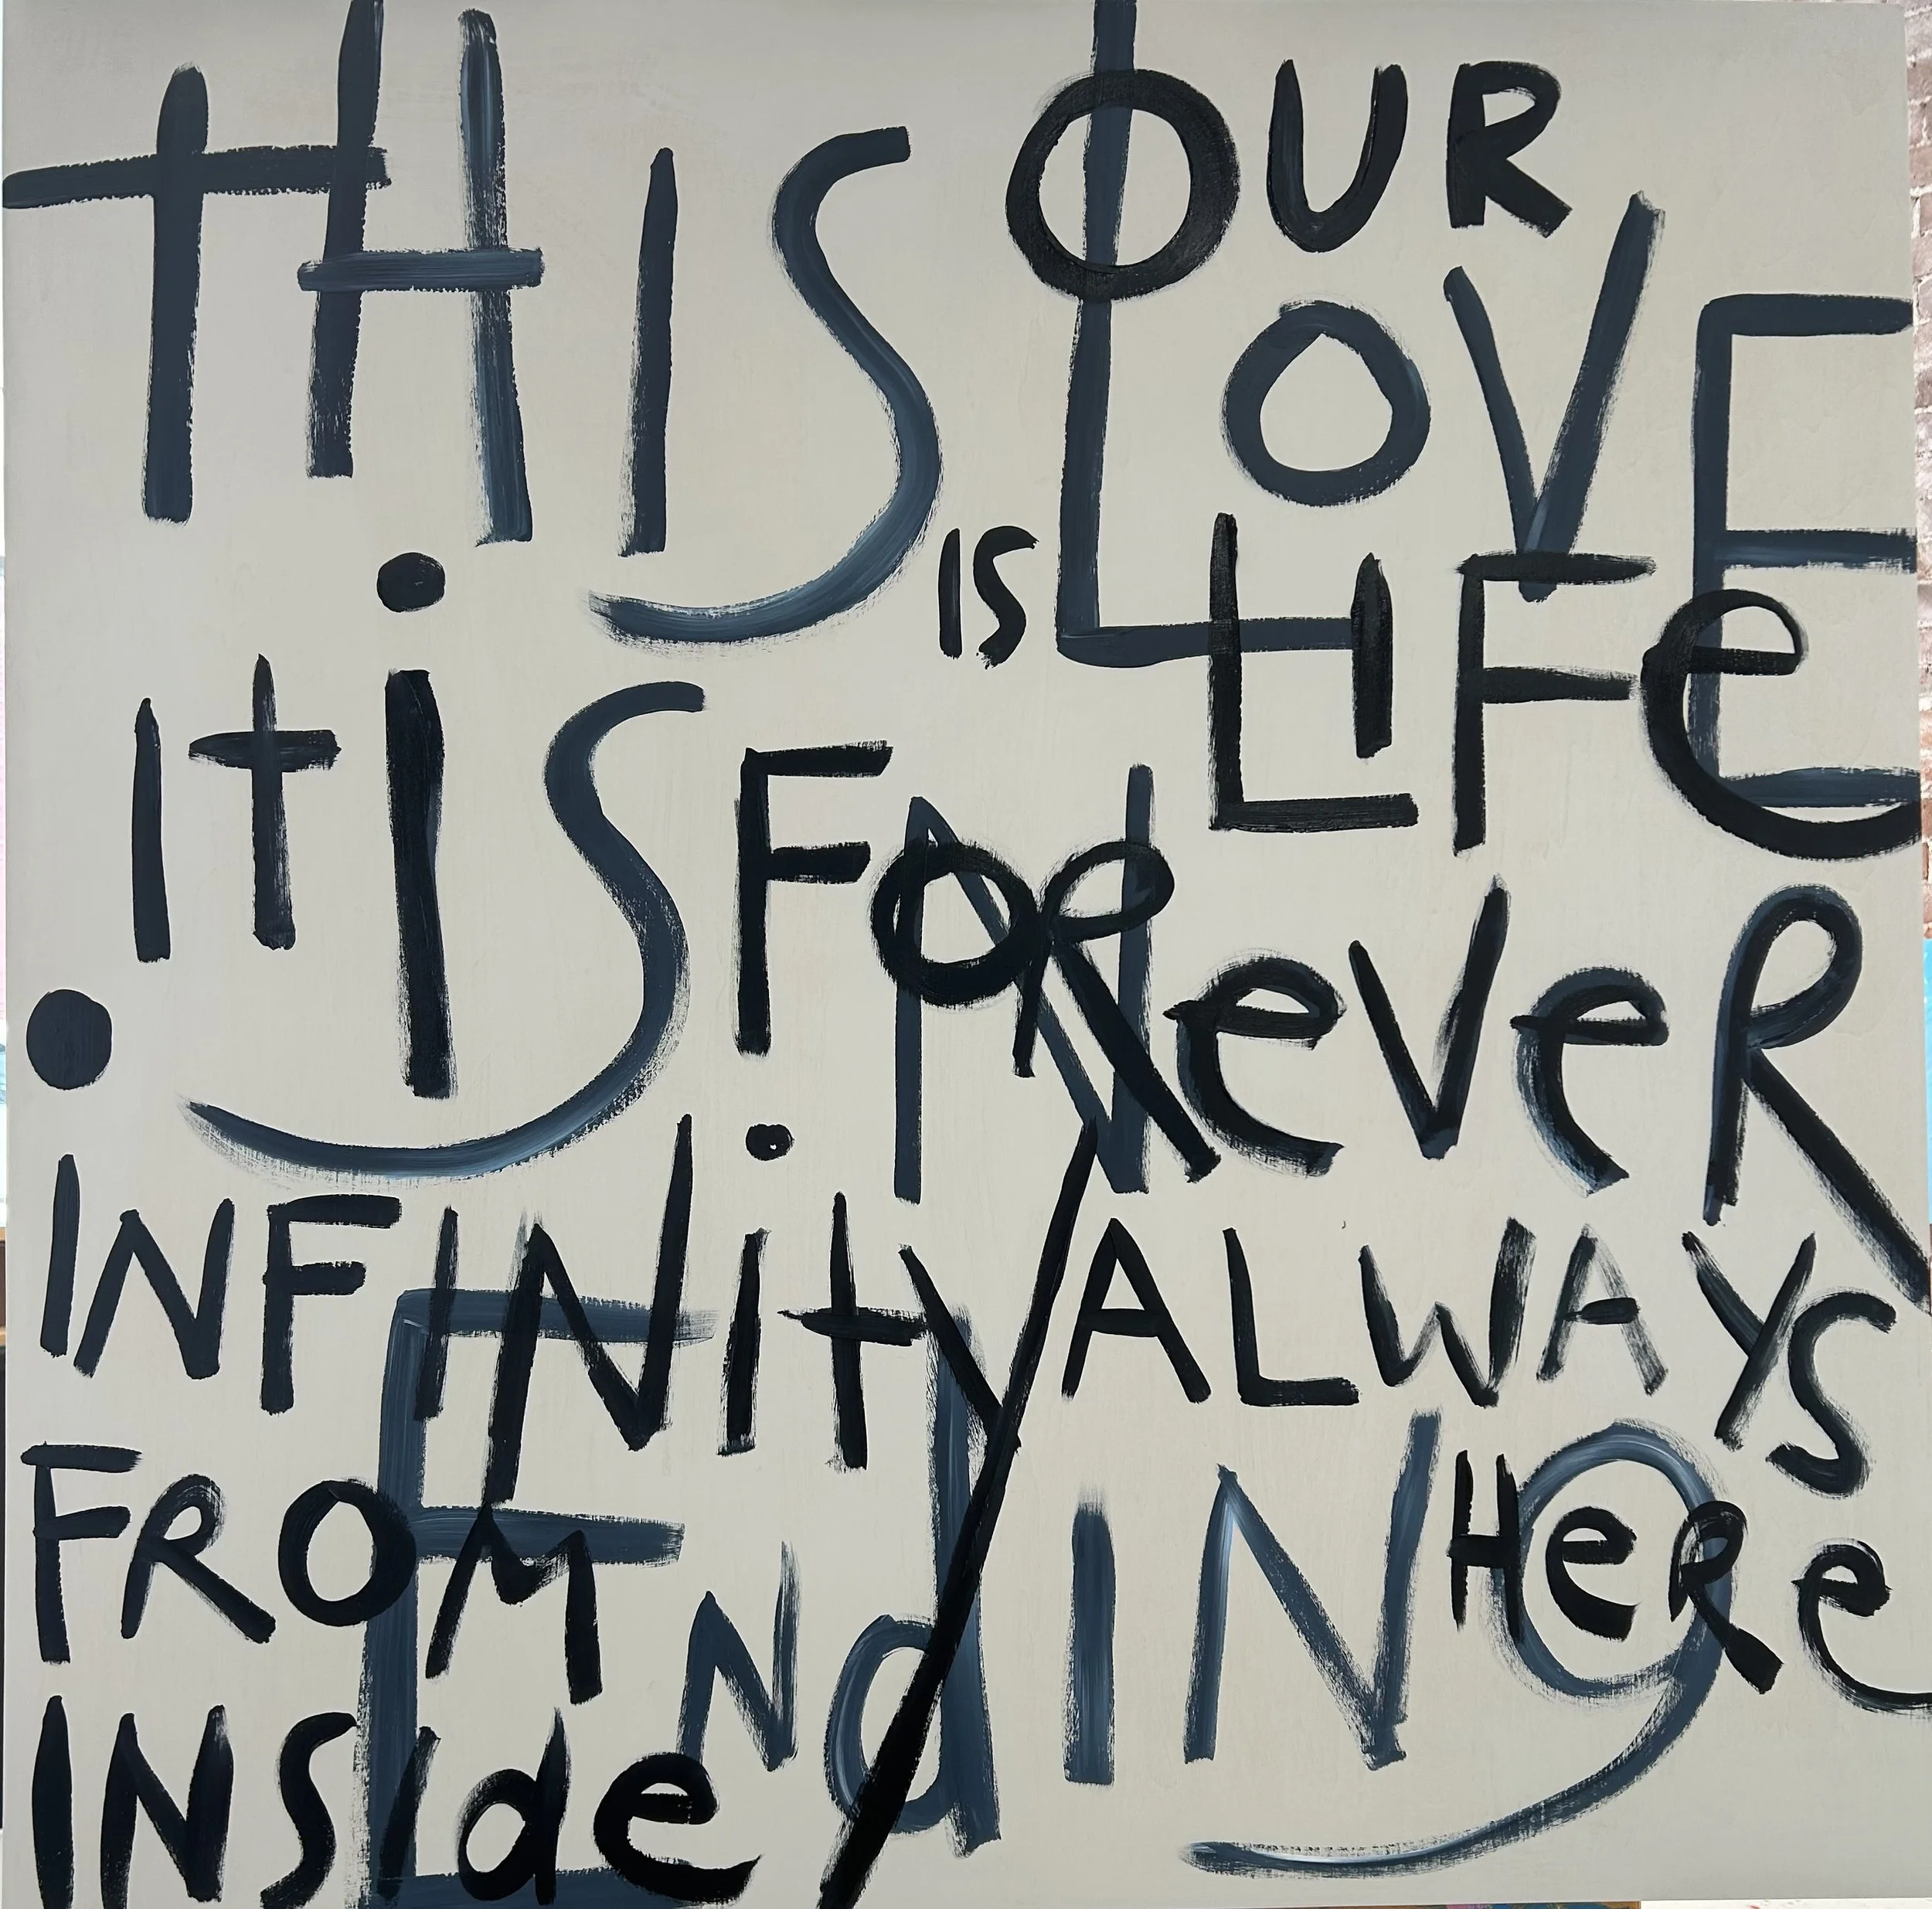 tHIS OUR
LOVE
IS LIFe
It iS FOReveR
NeveR
iNFINity ALWAYS
FROM HeRe
ENdINg
INSide